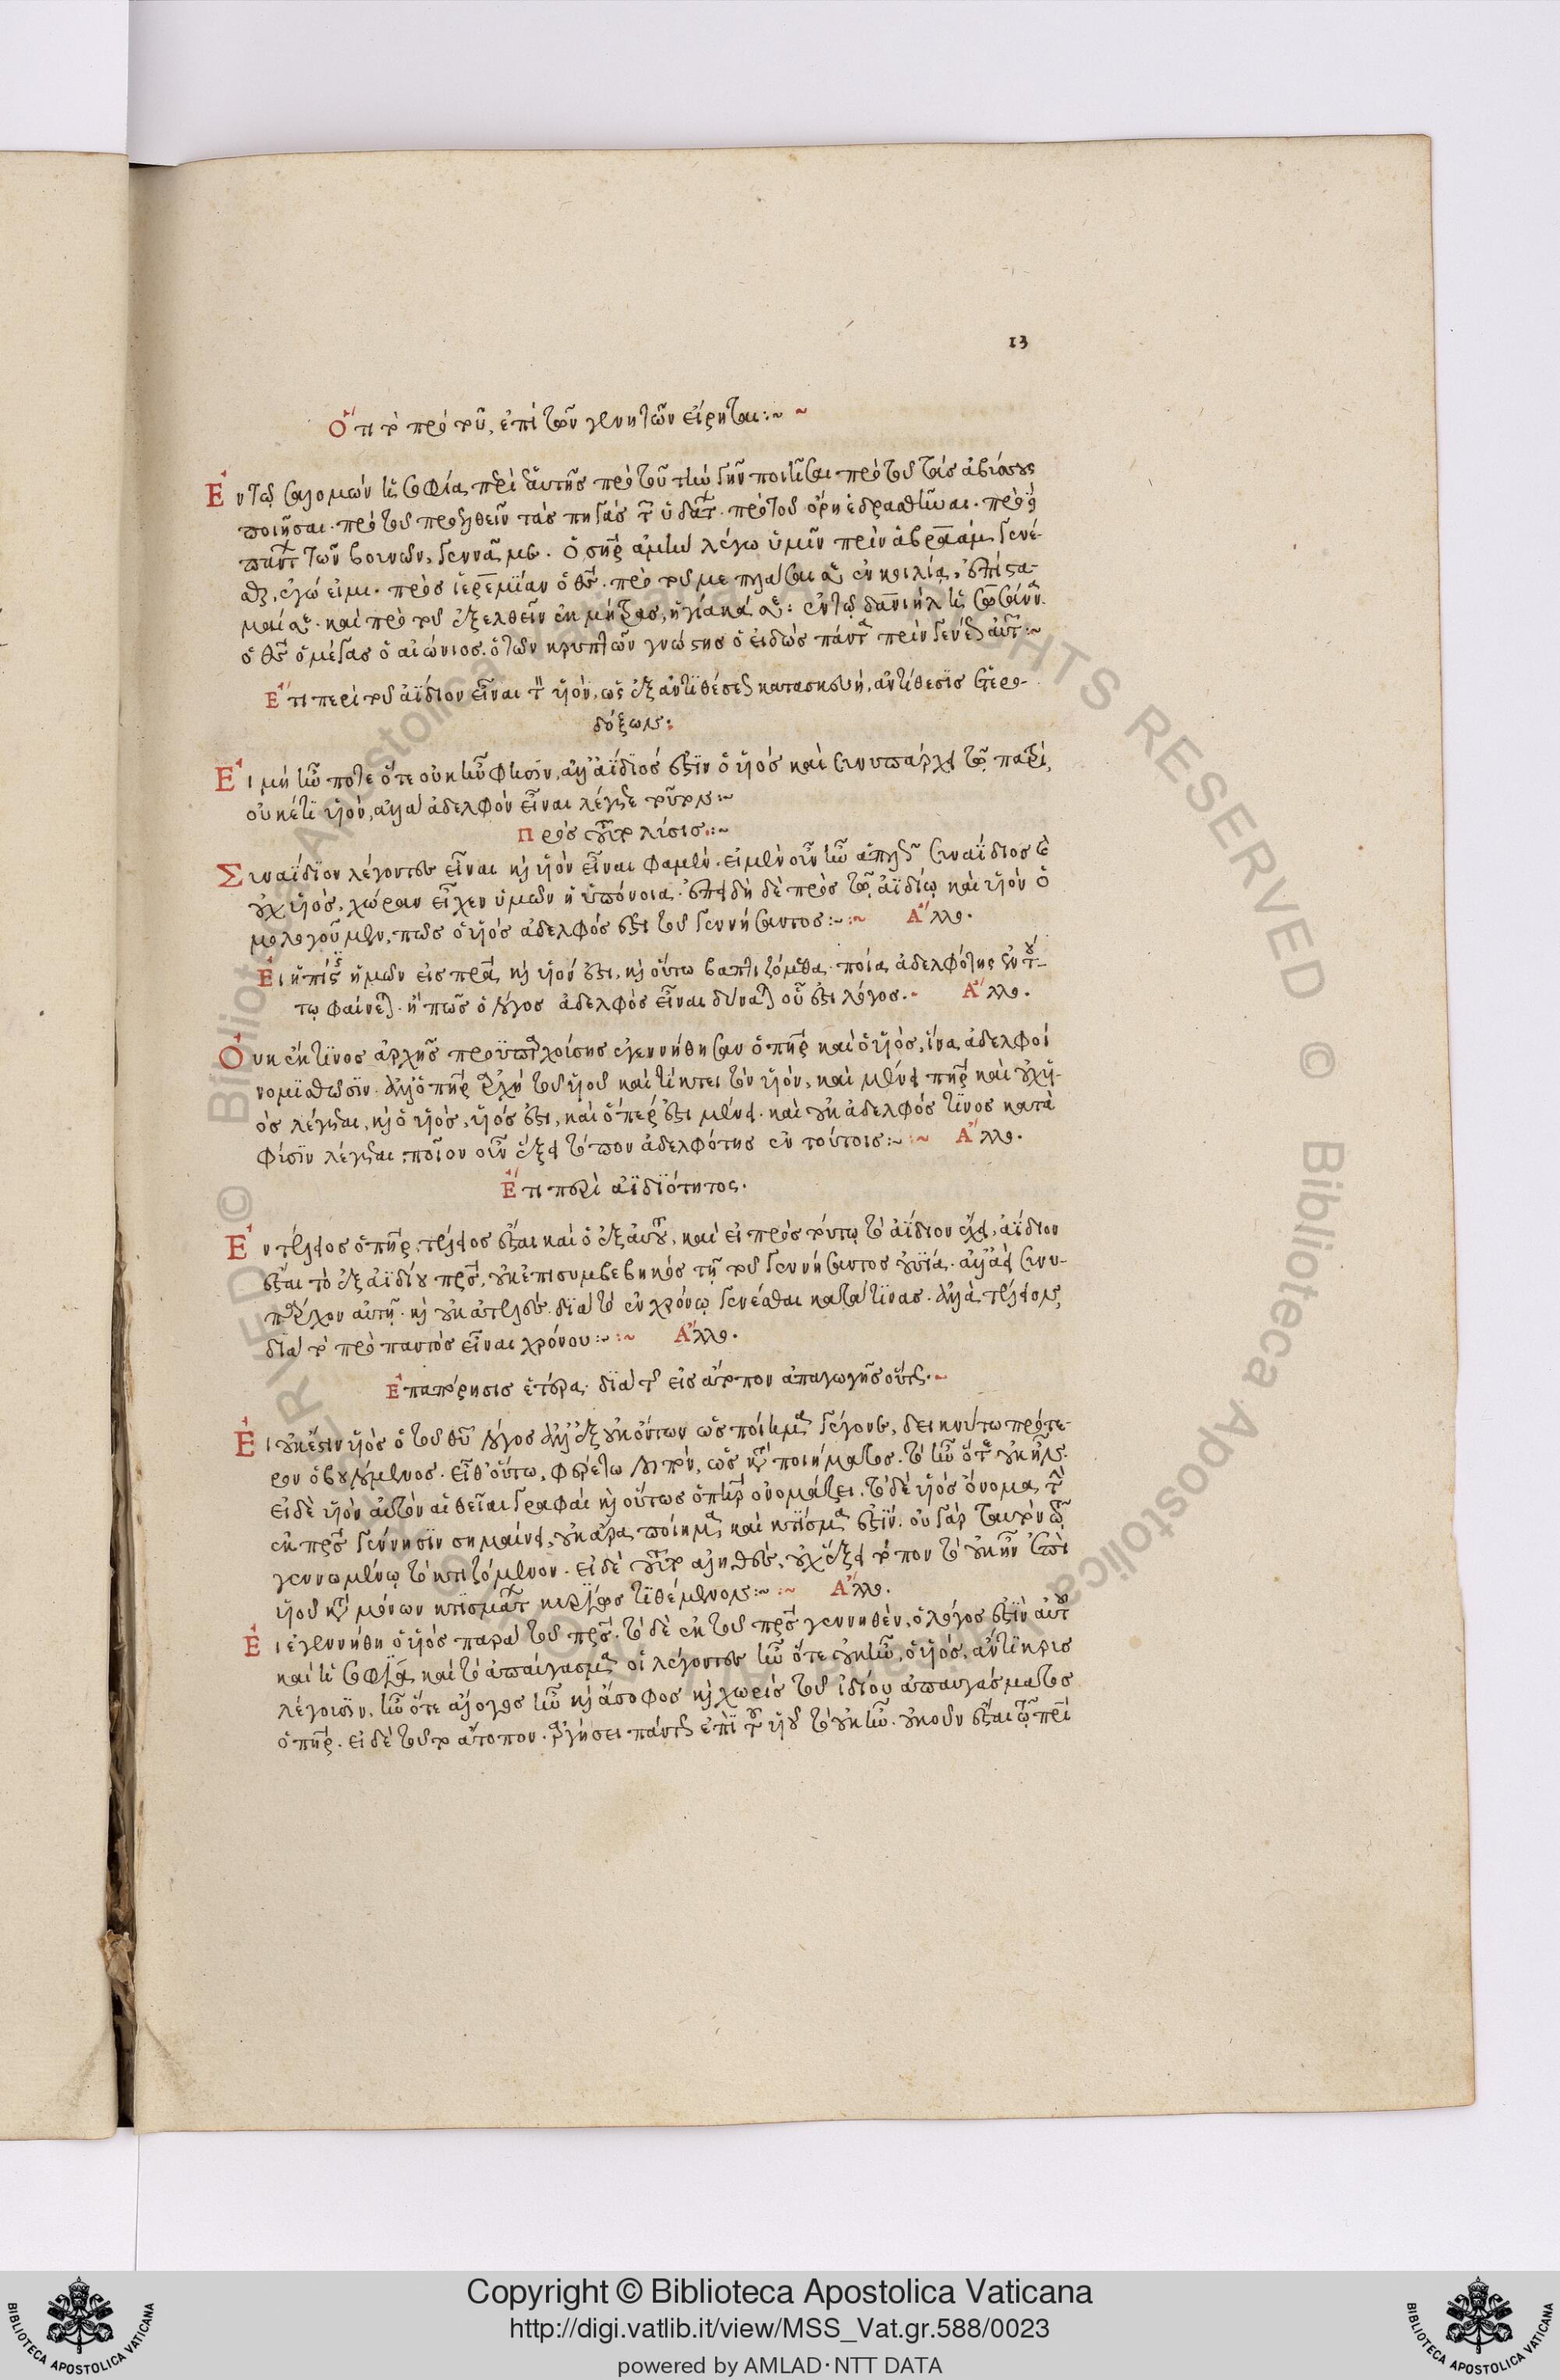 13
Ὅτι τὸ πρὸ τοῦ, ἐπὶ τῶν γενητῶν εἴρηται :~
Ἐν τῷ σολομῶν ἡ σοφία περὶ ἑαυτῆς πρὸ τοῦ τὴν γῆν ποιῆσαι πρὸ τοῦ τὰς ἀβύσσους
ποιῆσαι· πρὸ τοῦ προελθεῖν τὰς πηγὰς τῶν ὑδάτων· πρὸ τοῦ ὄρη ἑδρασθῆναι· πρὸ δὲ
πάντων τῶν βουνῶν, γεννᾶ με. ὁ σὴρ ἀμὴν λέγω ὑμῖν πρὶν ἀβραὰμ γενέ-
σθαι, ἐγώ εἰμι· πρὸς ἱερεμίαν ὁ θς· πρὸ τοῦ με πλάσαι σε ἐν κοιλίᾳ, ἐπίστα-
μαί σε· καὶ πρὸ τοῦ ἐξελθεῖν ἐκ μήτρας, ἡγίακά σε: ἐν τῷ δανιὴλ ἡ σωσάννα
ὁ θς ὁ μέγας ὁ αἰώνιος. ὁ τῶν κρυπτῶν γνώστης ὁ εἰδὼς πάντα πρὶν γενέσεως αὐτῶν :~
Ἔτι περὶ τοῦ ἀΐδιον εἶναι τὸν υἱὸν, ὡς ἐξ ἀντιθέσεως κατασκευή, ἀντίθεσις ἑτερο-
δόξων :
Εἰ μὴ ἦν ποτε ὅτε οὐκ ἦν φησὶν, ἀλλ' ἀΐδιός ἐστιν ὁ υἱὸς καὶ συνυπάρχει τῷ πατρί,
οὐκέτι υἱὸν, ἀλλὰ ἀδελφὸν εἶναι λέγετε τοῦτον :~
Πρὸς τοῦτο λύσις :~
Συναΐδιον λέγοντες εἶναι καὶ υἱὸν εἶναι φαμέν. εἰ μὲν οὖν ἦν ἁπλῶς συναΐδιος καὶ
οὐχ υἱὸς, χώραν εἶχεν ὑμῶν ἡ ὑπόνοια. ἐπειδὴ δὲ πρὸς τῷ ἀϊδίῳ καὶ υἱὸν ὁ
μολογοῦμεν, πῶς ὁ υἱὸς ἀδελφός ἐστι τοῦ γεννήσαντος :~ Ἄλλο.
Εἰ ἡ πίστις ἡμῶν εἰς πρα καὶ υἱόν ἐστι, καὶ οὕτω βαπτιζόμεθα. ποία ἀδελφότης ἐν τού-
τῳ φαίνεται. ἢ πῶς ὁ λόγος ἀδελφὸς εἶναι δύναται οὗ ἐστι λόγος. Ἄλλο.
Οὐκ ἔκ τινος ἀρχῆς προϋπαρχούσης ἐγεννήθησαν ὁ πηρ καὶ ὁ υἱὸς, ἵνα ἀδελφοὶ
νομισθῶσιν. ἀλλ' ὁ πηρ ἀρχὴ τοῦ υἱοῦ καὶ τίκτει τὸν υἱὸν, καὶ μένει πηρ καὶ οὐχ υἱ-
ὸς λέγεται, καὶ ὁ υἱὸς, υἱός ἐστι, καὶ ὅπερ ἐστὶ μένει. καὶ οὐκ ἀδελφός τινος κατὰ
φύσιν λέγεται, ποῖον οὖν ἕξει τόπον ἀδελφότης ἐν τούτοις :~ Ἄλλο.
Ἔτι περὶ ἀϊδιότητος.
Ἐντέλειος ὁ πηρ, τέλειος ἔσται καὶ ὁ ἐξ αὐτοῦ, καὶ εἰ πρὸς τούτῳ τὸ ἀΐδιον ἔχει, ἀΐδιον
ἔσται τὸ ἐξ ἀϊδίου πρς, οὐκ ἐπισυμβεβηκὸς τῇ τοῦ γεννήσαντος οὐσίᾳ. ἀλλ' ἀεὶ συνυ-
πάρχον αὐτῇ. καὶ οὐκ ἀτελὲς διὰ τὸ ἐν χρόνῳ γενέσθαι κατά τινας. ἀλλὰ τέλειον,
διὰ τὸ πρὸ παντὸς εἶναι χρόνου :~ Ἄλλο.
Ἐπαπόρησις ἑτέρα. διὰ τῆς εἰς ἄτοπον ἀπαγωγῆς οὕτως.~
Εἰ οὐκ ἔστιν υἱὸς ὁ τοῦ θυ λόγος ἀλλ' ἐξ οὐκ ὄντων ὡς ποίημα γέγονε, δεικνύτω πρότε-
ρον ὁ βουλόμενος. εἶθ' οὕτω, φερέτω λοιπὸν, ὡς κατὰ ποιήματος. τὸ ἦν ὅτε οὐκ ἦν.
εἰ δὲ υἱὸν αὐτὸν αἱ θεῖαι γραφαὶ καὶ οὕτως ὁ πηρ ὀνομάζει. τὸ δὲ υἱὸς ὄνομα τὴν
ἐκ πρς γέννησιν σημαίνει, οὐκ ἄρα ποίημα καὶ κτίσμα ἐστίν. οὐ γὰρ ταυτὸν τῷ
γεννωμένῳ τὸ κτιζόμενον. εἰ δὲ τοῦτο ἀληθὲς, οὐχ ἕξει τόπον τὸ οὐκ ἦν ἐπὶ
υἱοῦ κατὰ μόνων κτισμάτων κυρίως τιθέμενον :~ Ἄλλο.
Εἰ ἐγεννήθη ὁ υἱὸς παρὰ τοῦ πρς. τὸ δὲ ἐκ τοῦ πρς γεννηθὲν, ὁ λόγος ἐστὶν αὐτοῦ
καὶ ἡ σοφία καὶ τὸ ἀπαύγασμα οἱ λέγοντες ἦν ὅτε οὐκ ἦν, ὁ υἱὸς, ἄντικρυς
λέγουσιν, ἦν ὅτε ἄλογος ἦν καὶ ἄσοφος καὶ χωρὶς τοῦ ἰδίου ἀπαυγάσματος
ὁ πηρ. εἰ δὲ τοῦτο ἄτοπον. ἀργήσει πάντως ἐπὶ τοῦ υἱοῦ τὸ οὐκ ἦν. οὐκοῦν ἔσται τῷ πρὶ
Copyright © Biblioteca Apostolica Vaticana
http://digi.vatlib.it/view/MSS_Vat.gr.588/0023
powered by AMLAD·NTT DATA